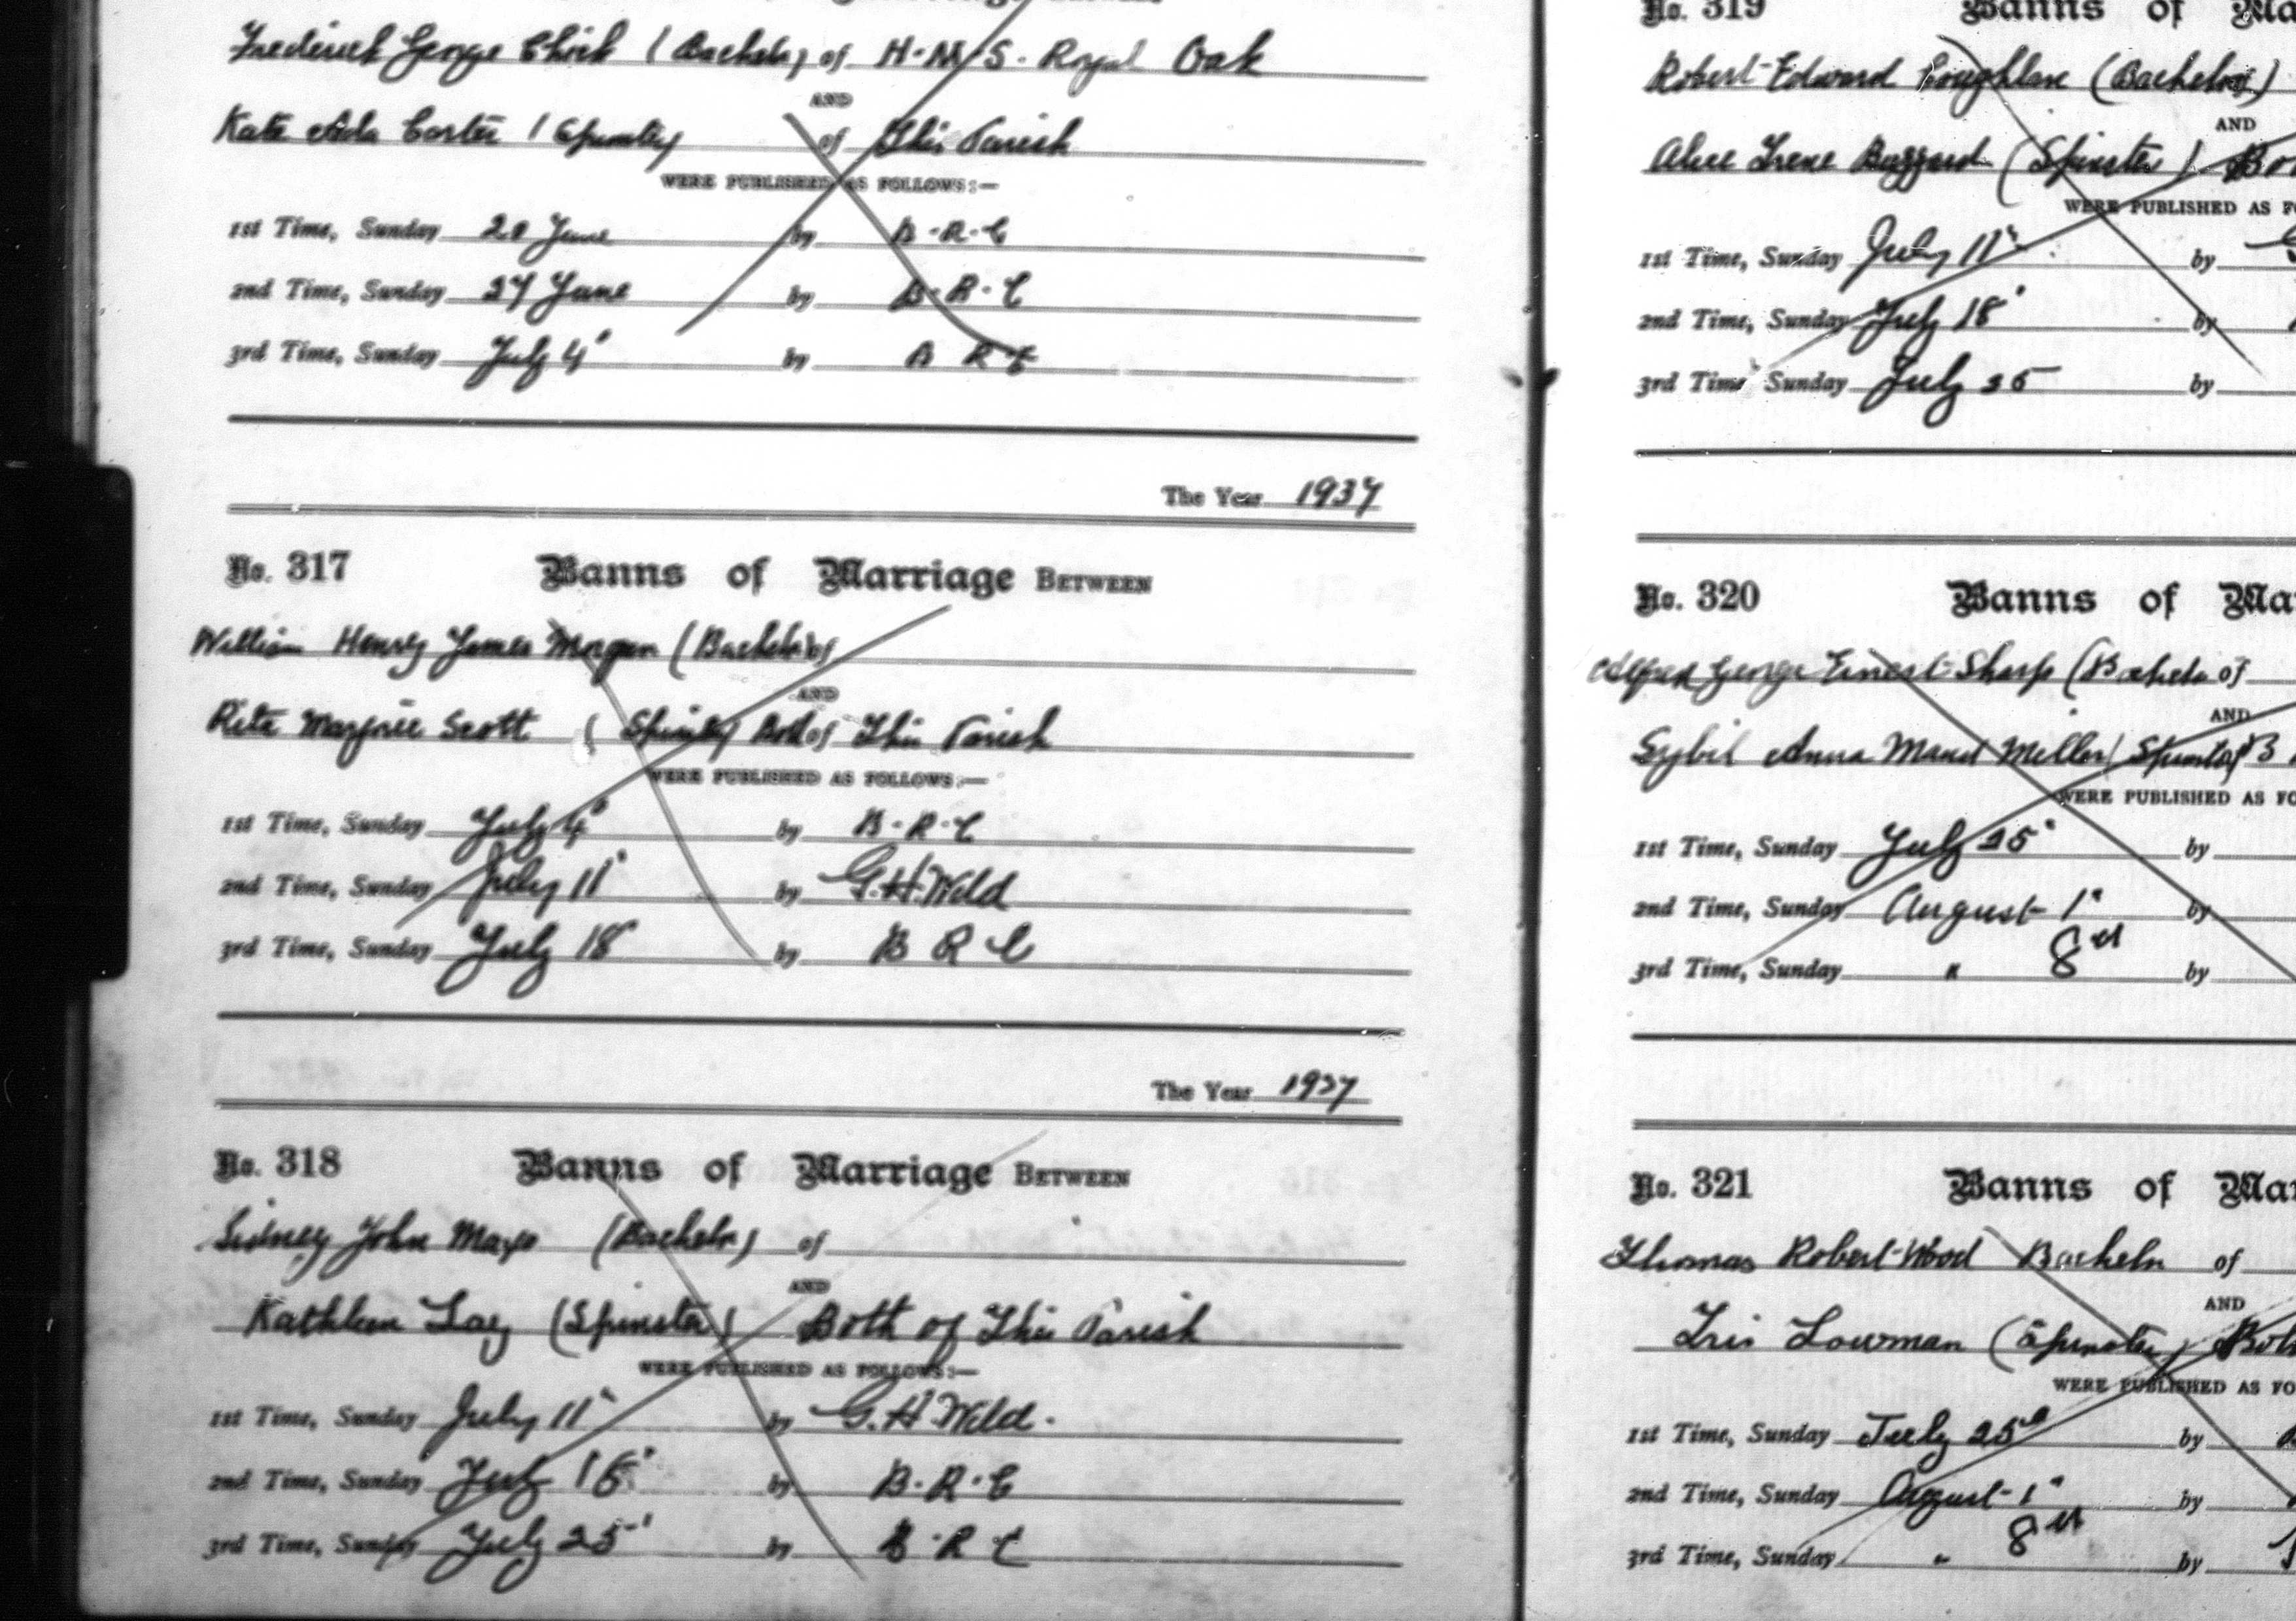 Frederick George Chick (Bachelor) of H.M.S. Royal Oak
AND
Kate Ada Carter (Spinster) of This Parish
WERE PUBLISHED AS FOLLOWS:—
1st Time, Sunday 20 June by B.R.C
2nd Time, Sunday 27 June by B.R.C
3rd Time, Sunday July 4 by B R C
The Year 1937
No. 317 Banns of Marriage BETWEEN
William Henry James Morgan (Bachelor) of
AND
Rita Marjorie Scott (Spinster) Both of This Parish
WERE PUBLISHED AS FOLLOWS:—
1st Time, Sunday July 4 by B.R.C
2nd Time, Sunday July 11 by G.H.Wild
3rd Time, Sunday July 18 by B R C
The Year 1937
No. 318 Banns of Marriage BETWEEN
Sidney John Mays (Bachelor) of
AND
Kathleen Lay (Spinster) Both of This Parish
WERE PUBLISHED AS FOLLOWS:—
1st Time, Sunday July 11 by G.H.Wild.
2nd Time, Sunday July 18 by B.R.C
3rd Time, Sunday July 25 by B.R.C
No. 319 Banns of Ma
Robert Edward Coughlan (Bachelor)
AND
Alice Irene Buggard (Spinster) Bo
WERE PUBLISHED AS FO
1st Time, Sunday July 11 by G
2nd Time, Sunday July 18 by
3rd Time Sunday July 25 by
No. 320 Banns of Ma
Alfred George Ernest Sharp (Bachelor of
AND
Sybil Anna Maud Miller (Spinster) B
WERE PUBLISHED AS FO
1st Time, Sunday July 25 by
2nd Time, Sunday August 1 by
3rd Time, Sunday " 8th by
No. 321 Banns of Mar
Thomas Robert Wood Bachelor of
AND
Iris Lowman (Spinster) Both
WERE PUBLISHED AS FO
1st Time, Sunday July 25 by
2nd Time, Sunday August 1 by
3rd Time, Sunday " 8th by